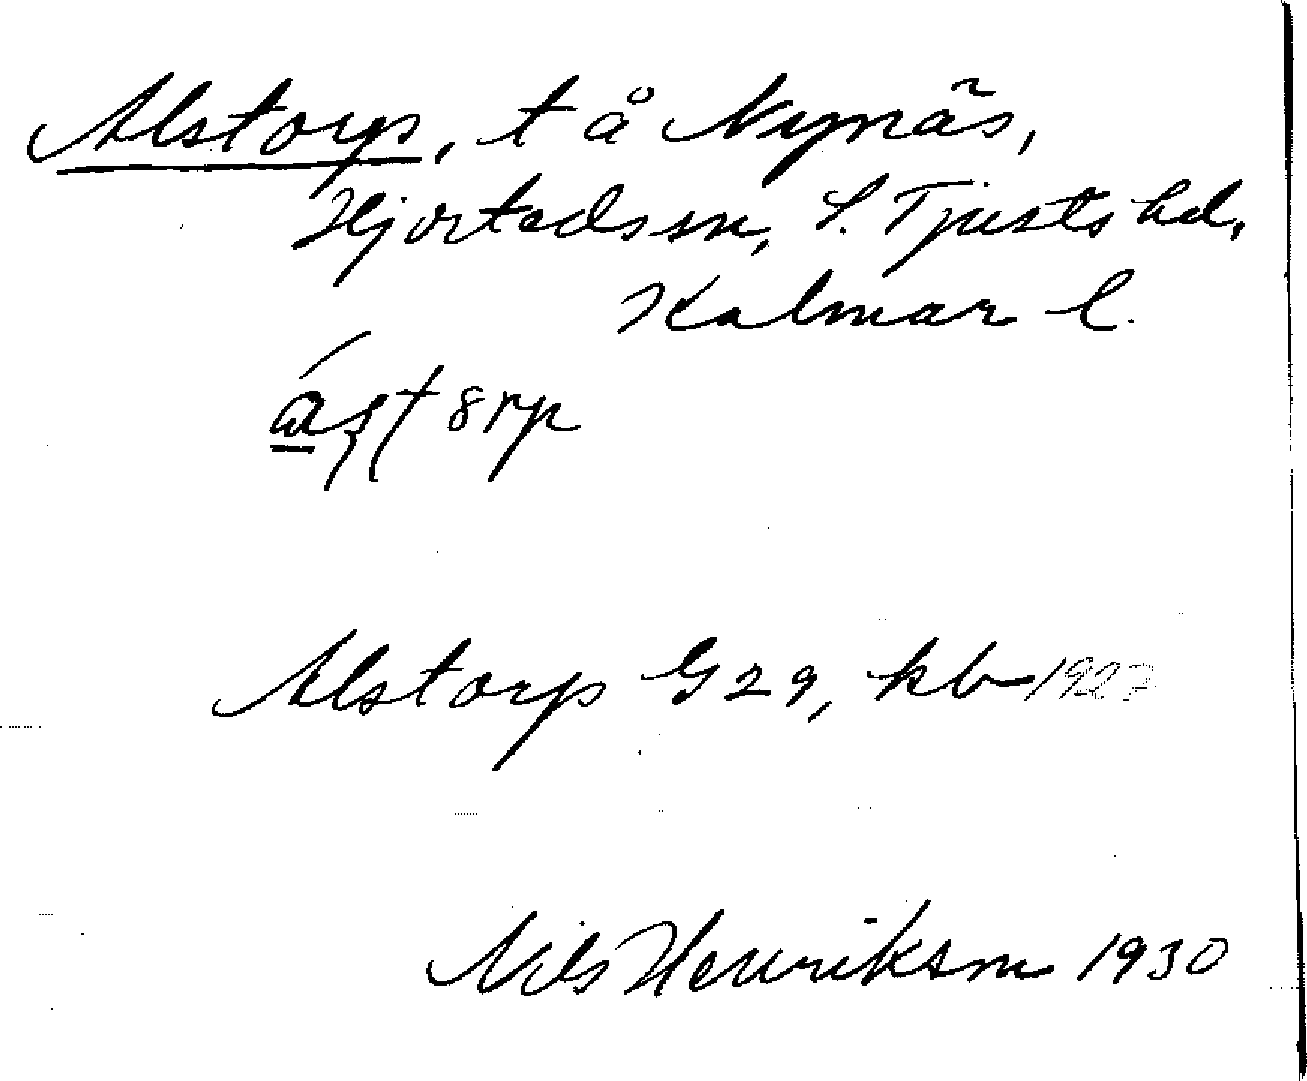 Alstorp, t å Nynäs,
Hjorteds sn, S. Tjusts hd,
Kalmar l.
Alstorp G 29, kb 1927
Nils Henrikson 1930